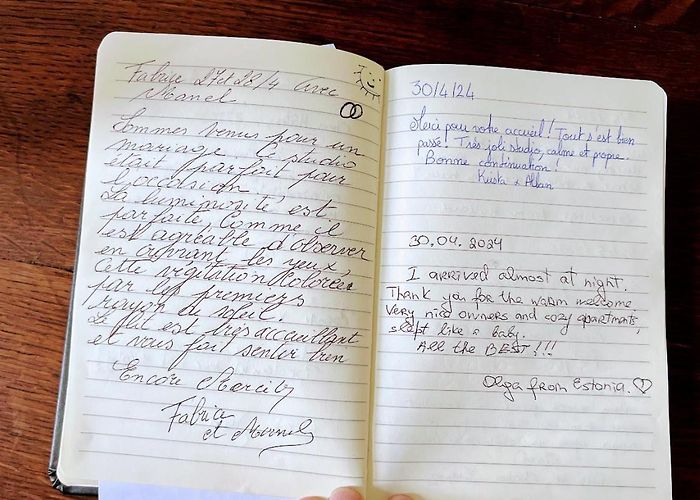 Fabrice 27 et 28/4 avec
Manel
Sommes venus pour un
mariage. Ce studio
était parfait pour
l'occasion.
La luminosité est
parfaite, comme il
est agréable d'observer
en ouvrant les yeux,
cette végitation colorée
par les premiers
rayon de soleil.
Le lit est très accueillant
et vous fait sentir bien
Encore Merci
Fabrice
et Manel
30/4/24
Merci pour votre accueil! Tout s'est bien
passé! Très joli studio, calme et propre.
Bonne continuation!
Krista & Alban
30.04.2024
I arrived almost at night.
Thank you for the warm welcome
Very nice owners and cozy apartments,
slept like a baby.
All the BEST!!!
Olga from Estonia.